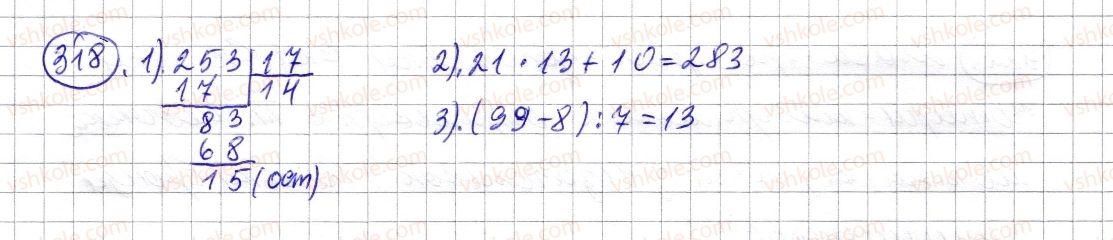 318. 1). 253 | 17
17 | 14
83
68
15 (ост)
2). 21 · 13 + 10 = 283
3). (99 - 8) : 7 = 13